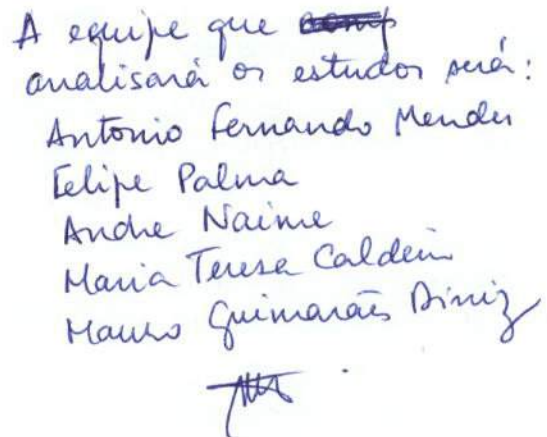 A equipe que
analisará os estudos será:
Antonio Fernando Mendes
Felipe Palma
Andre Naime
Maria Teresa Caldeira
Mauro Guimarães Diniz